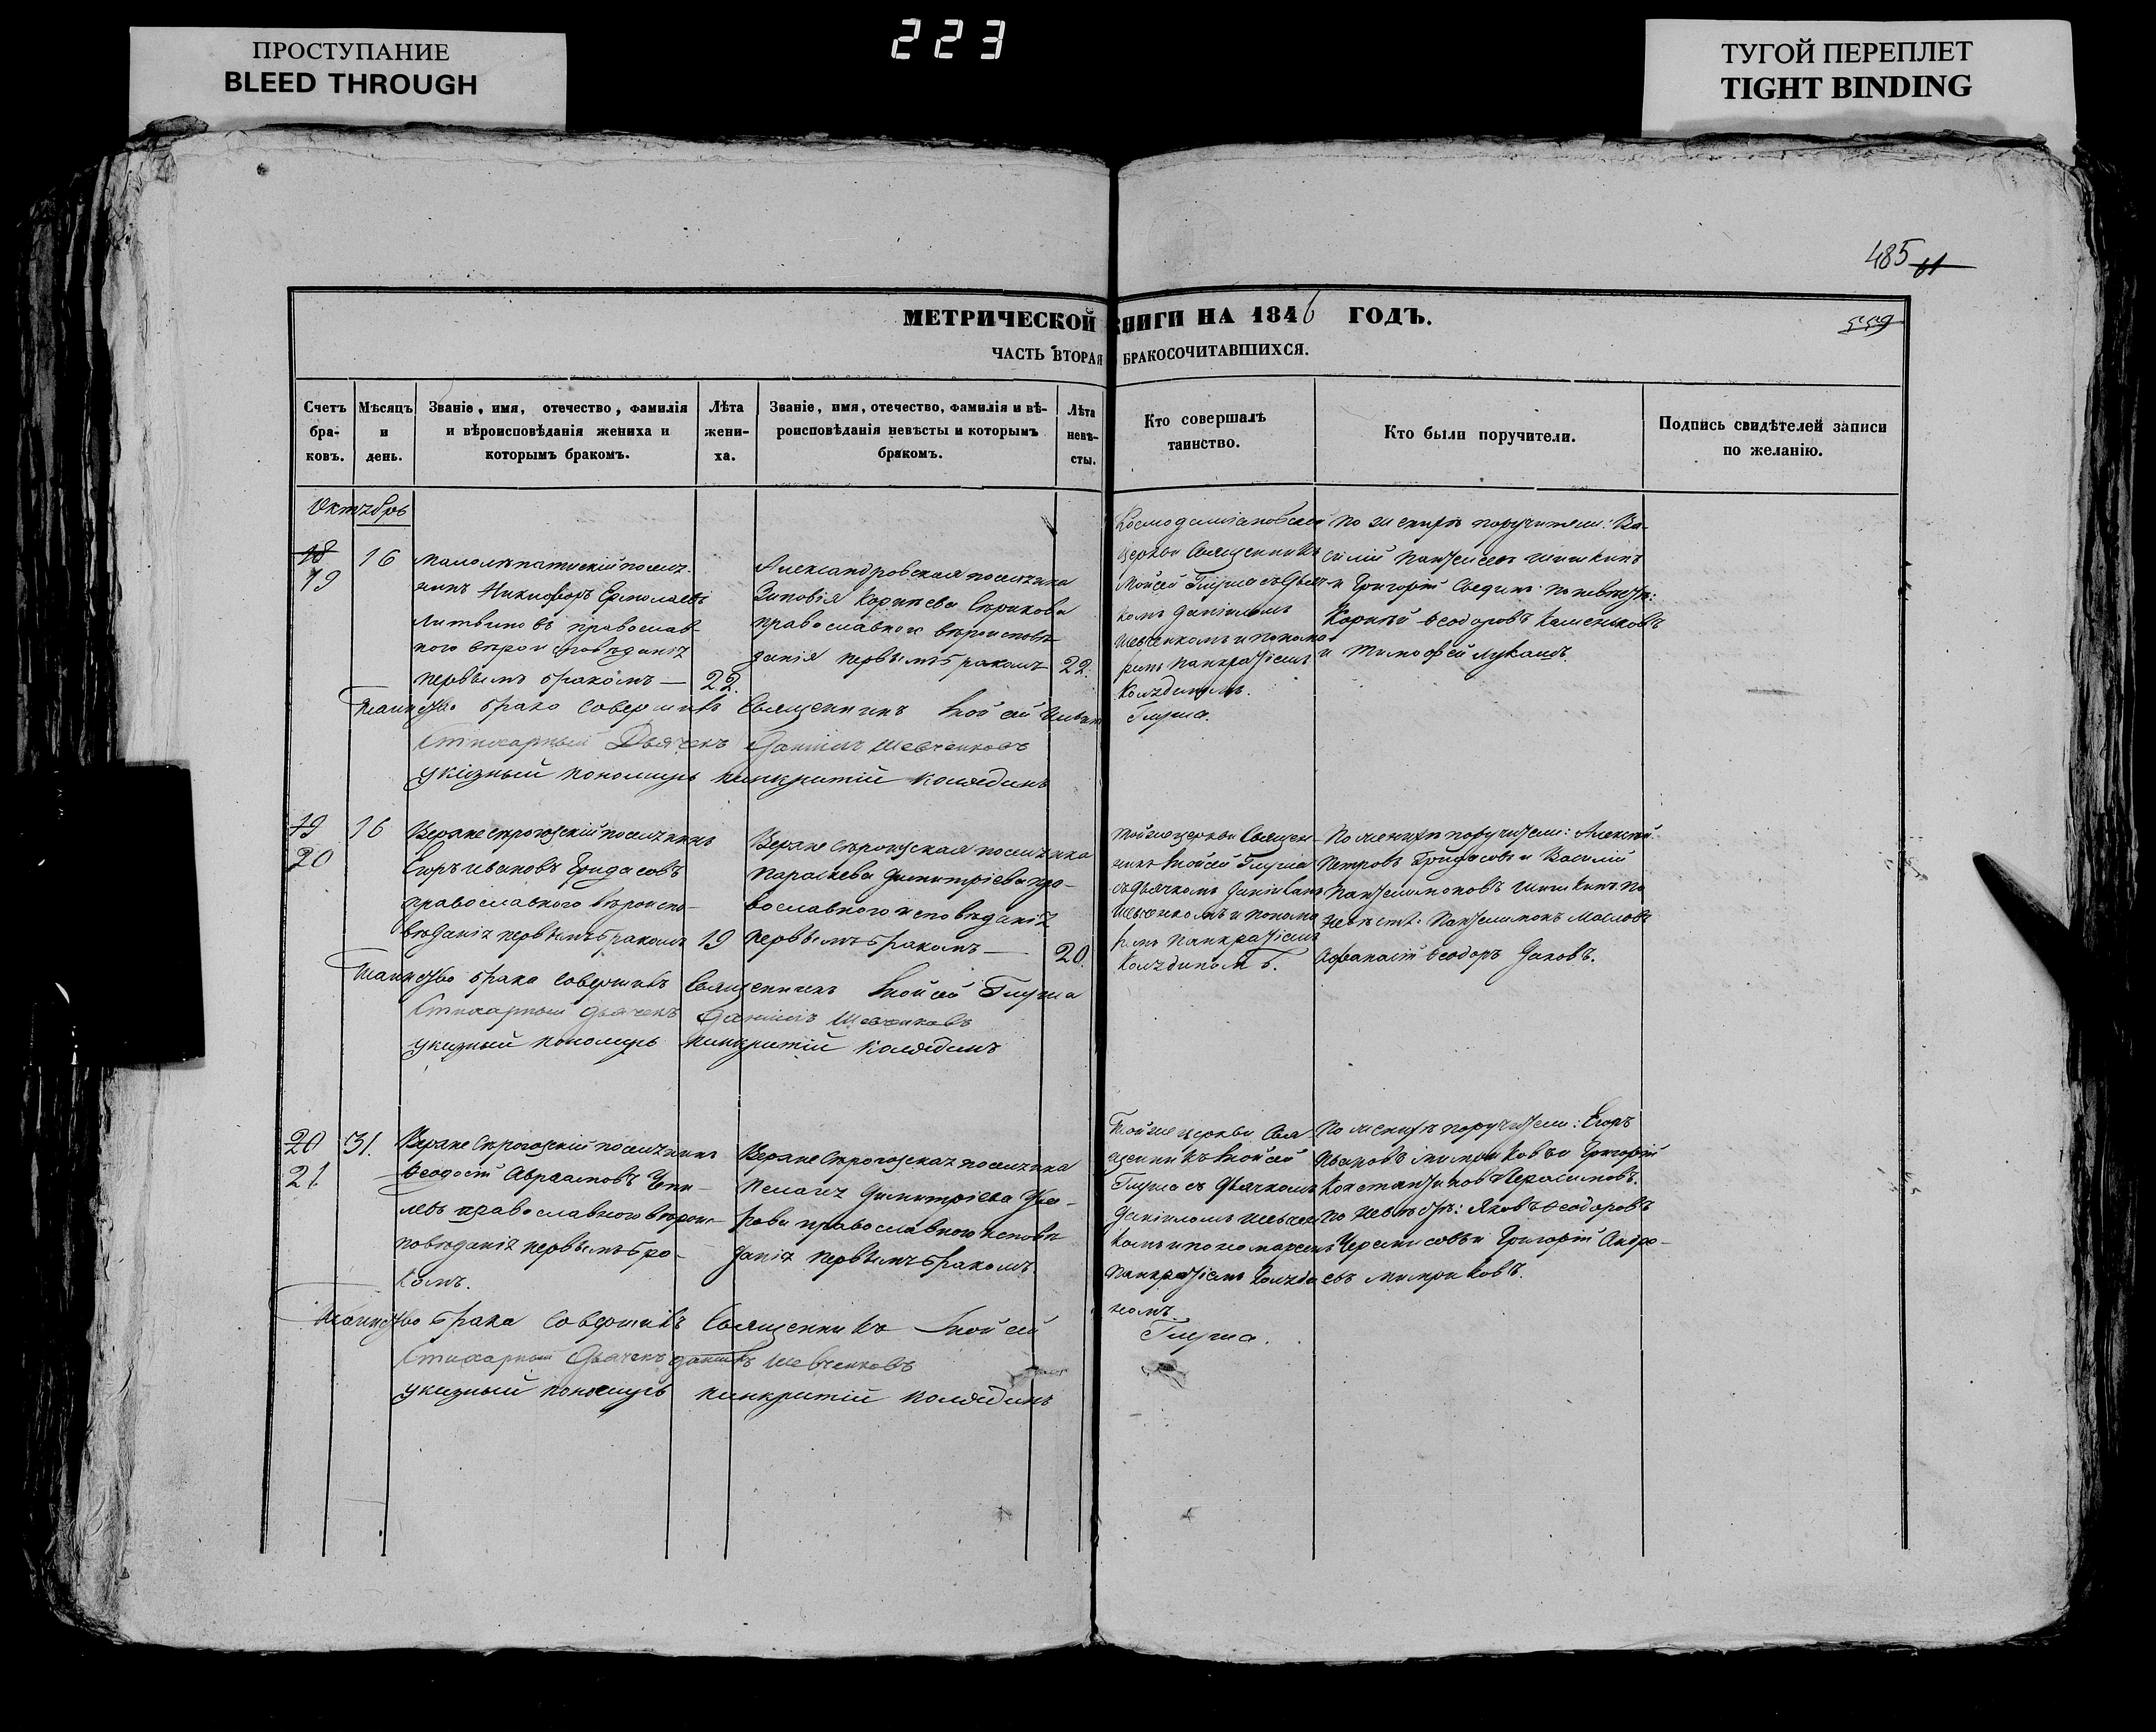 ПРОСТУПАНИЕ
BLEED THROUGH
223
ТУГОЙ ПЕРЕПЛЕТ
TIGHT BINDING
485 61
МЕТРИЧЕСКОЙ КНИГИ НА 1846 ГОДЪ.
559
ЧАСТЬ ВТОРАЯ БРАКОСОЧИТАВШИХСЯ.
Счетъ бра- ковъ.
Мѣсяцъ и день.
Званіе, имя, отечество, фамилія и вѣроисповѣданія жениха и которымъ бракомъ.
Лѣта жени- ха.
Званіе, имя, отечество, фамилія и вѣ- роисповѣданія невѣсты и которымъ бракомъ.
Лѣта невѣ- сты.
Кто совершалъ таинство.
Кто были поручители.
Подпись свидѣтелей записи по желанію.
Октябрь
18
19
16
поселя-
нинъ Никифоръ Ермолаевъ
Литвиновъ православ-
ного вѣроисповѣданія
первымъ бракомъ —
22.
Александровская поселянка
Зиновія Корнѣева
православного вѣроисповѣ-
данія первымъ бракомъ
22.
Космодаміановской
церкви Священникъ
Моисей Глума съ Дьяч-
комъ Даніиломъ
Шевченкомъ и понома-
ремъ Панкратіемъ
Колядинымъ.
По женихѣ поручители: Ва-
силій Шишкинъ
и Григорій по невѣстѣ:
Корнѣй Ѳеодоровъ
и Тимофей Лукашъ.
Таинство брака совершивъ Священникъ Моисей
Глума.
Стихарный Дьячекъ Даніилъ Шевченковъ
указный пономарь Панкратій Колядинъ
19
20
16
Верхнесѣрогозскій поселянинъ
Егоръ Ивановъ Гридасовъ
православного вѣроиспо-
вѣданія первымъ бракомъ
19
Верхнесѣрогозская поселянка
Параскева Димитріева пра-
вославного исповѣданія
первымъ бракомъ —
20.
Тойже церкви Священ-
никъ Моисей Глума
съ Дьячкомъ Даніиломъ
Шевченкомъ и понома-
ремъ Панкратіемъ
Колядиномъ.
По женихѣ поручители: Алексѣй
Петровъ Гридасовъ и Василій
Пантелимоновъ Шишкинъ по
невѣстѣ: Пантелимонъ Масловъ
Афанасій Ѳеодоръ
Таинство брака совершивъ Священникъ Моисей Глума
Стихарный дьячекъ Даніилъ Шевченковъ
указный пономарь Панкратій Колядинъ
20
21
31.
Верхнесѣрогозскій поселянинъ
Ѳеодосій Авраамовъ
православного вѣроис-
повѣданія первымъ бра-
комъ.
Верхнесѣрогозская поселянка
Димитріева
православного исповѣ-
данія первымъ бракомъ.
Тойже церкви Свя-
щенникъ Моисей
Глума съ Дьячкомъ
Даніиломъ Шевчен-
комъ и пономаремъ
Панкратіемъ Коляди-
номъ
По женихѣ поручители: Егоръ
Ивановъ и Григорій
Константиновъ Герасимовъ.
по невѣстѣ: Яковъ Ѳеодоровъ
Черемисовъ и Григорій Андре-
евъ
Таинство брака совершивъ Священникъ Моисей
Глума.
Стихарный Дьячекъ Даніилъ Шевченковъ
указный пономарь Панкратій Колядинъ